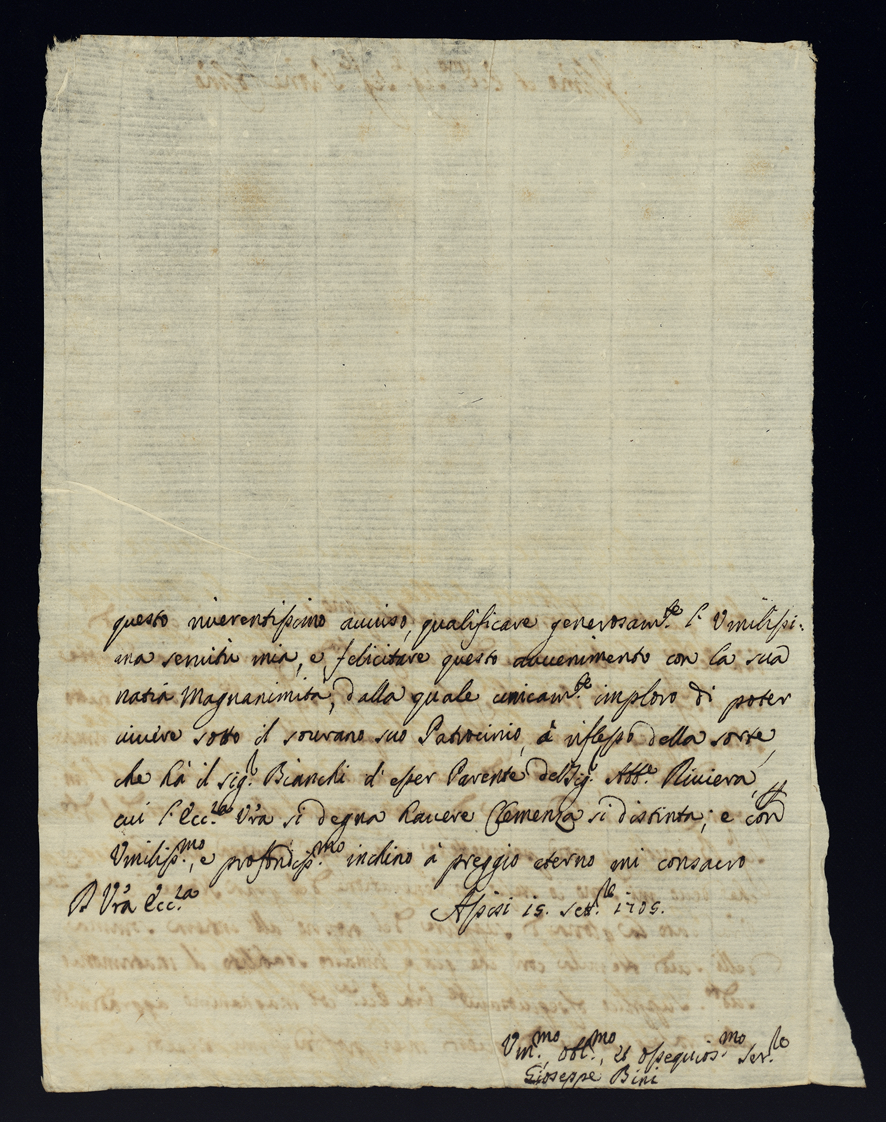 questo riverentissimo auuiso, qualificare generosam.te l' Vmilissi-
ma seruitù mia, e felicitare questo auuenimento con la sua
natia Magnanimità, dalla quale unicam.te imploro di poter
uiuere sotto il sourano suo Patrocinio, à riflesso della sorte,
che hà il Sig.r Bianchi d' esser Parente del Sig.r Abb.e Riviera,
cui l' Ecc.za Vrã si degna hauere Clemenza si distinta; e con
Vmiliss.mo, e profondiss.mo inchino à preggio eterno mi consacro
D. Vrã Ecc.za Assisi 15. Sett.re 1705.
Vm.mo, Obl.mo, et Ossequios.mo Ser.re
Gioseppe Bini